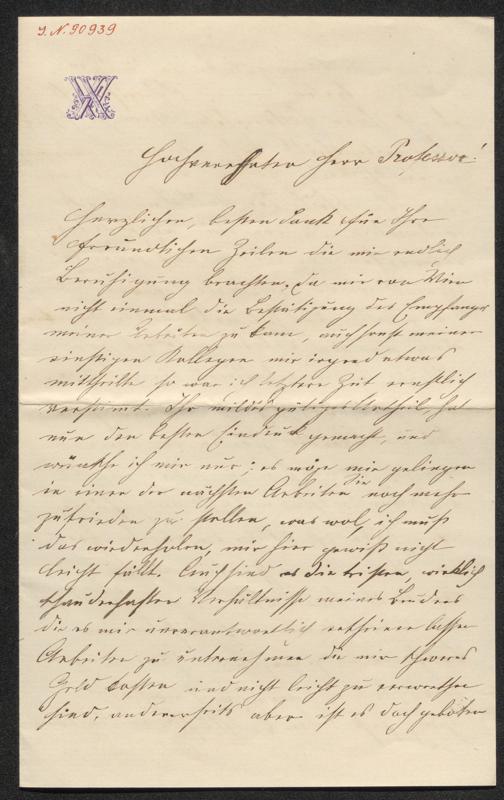 J. N. 90939
Hochverehrter Herr Professor!
Herzlichen, besten Dank für Ihre
freundlichen Zeilen die mir endlich
Beruhigung brachten. Da mir von Wien
nicht einmal die Bestätigung des Empfanges
meiner Arbeiten zu kam, auch sonst meiner
einstigen Kollegen mir irgend etwas
mittheilte so war ich letztere Zeit ernstlich
verstimt. Ihr mildes gütiges Urtheil hat
nun den besten Eindruk gemacht, und
wünsche ich mir nur: es möge mir gelingen
in einer der nächsten Arbeiten Sie noch mehr
zufrieden zu stellen, was wol, ich muß
das wiederholen, mir hier gewiß nicht
leicht fällt. Auch sind es die tristen, wirklich
schauderhaften Verhältnisse meines Bruders
die es mir unverantwortlich erscheinen lassen
Arbeiten zu unternehmen die mir schweres
Geld kosten und nicht leicht zu verwerthen
sind, andererseits aber ist es doch geboten